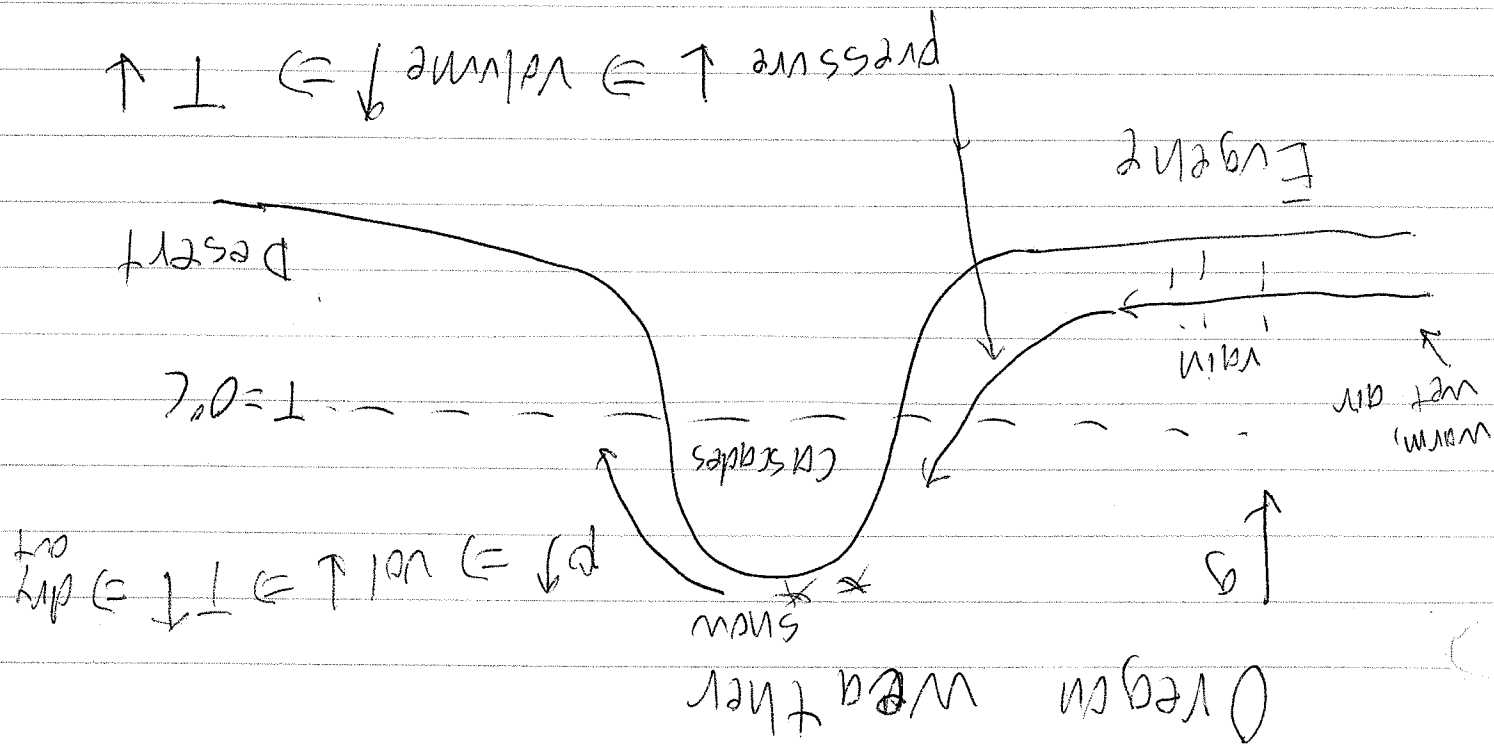 Oregon weather
snow
g
p ↑ ⇒ vol ↓ ⇒ T ↑ ⇒ dry
out
warm,
wet air
rain
Cascades
T = 0°C
Desert
Eugene
pressure ↓ ⇒ volume ↑ ⇒ T ↓